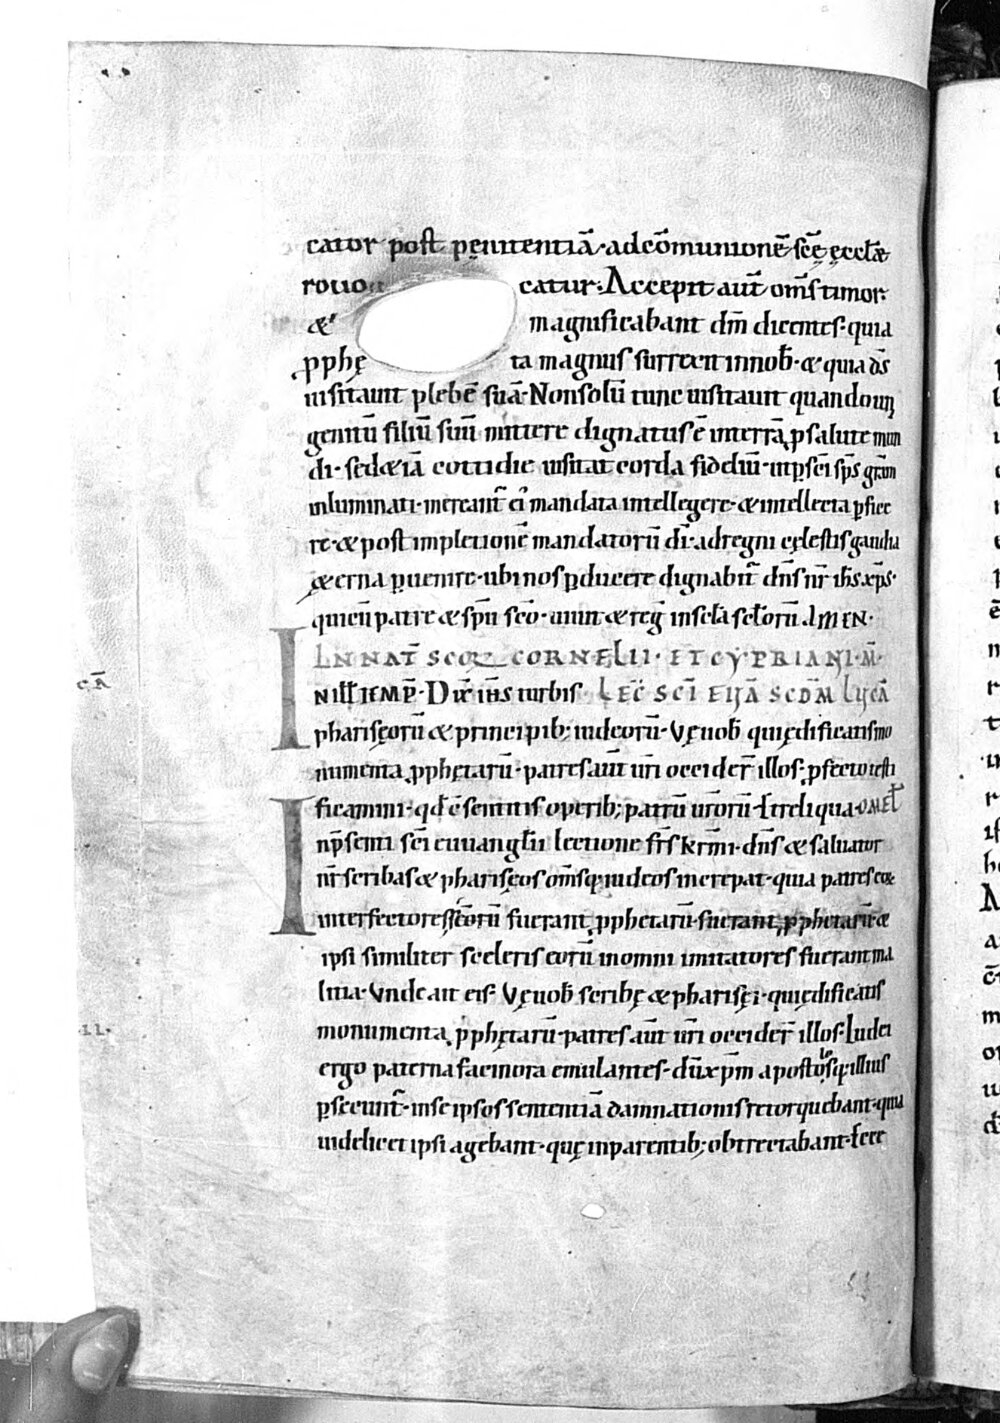 cator post pęnitentiā· ad cōmunionē scę̄ ęccłæ
reuo catur· Accepit aut̄ om̄s timor·
&· magnificabant dm̄ dicentes· quia
p̱phę ta magnus surrexit in nob̄· & quia ds̄
uisitauit plebē suā· Non solū tunc uisitauit quando uni
genitū filiū suū mittere dignatus ē in terrā p̱ salute mun
di· sed & iā cottidie uisitat corda fideliū· ut p̱ sc̄i sp̄s gr̄am
inluminati· mereant̄ ei᾽ mandata intellegere· & intellecta p̱fice
re· & post impletionē mandatorū di᷎· ad regni cęlestis gaudia
æterna p̱uenire· ubi nos p̱ducere dignabit̄ dn̄s nr̄ ih̄s xp̄s·
qui cū patre & sp̄u sc̄o· uiuit & reḡ in scła scłorū AMEN·
IN NAT̄ SCOꝜ CORNELII· ET CYPRIANI· M̄·
cā
N ILŁ TEMP̄· Dix̄ ih̄s turbis· LEC̄ SCĪ EUĀ SCDM̄ LUCĀ
pharisęorū & principib; iudeorū· Vę uob̄ qui ędificatis mo
numenta p̱phętarū· patres aut̄ ur̄i occider̄ illos· p̱fecto testi
ficamini· qđ ē sentitis operib; patrū ur̄orū· ł reliqua· OMEŁ
I N p̱senti sc̄i euuanglīi lectione fr̄s kr̄mi· dn̄s & saluator
nr̄ scribas & pharisęos om̄sq; iudeos increpat· quia patres eoꝝ
interfectores scōrū fuerant p̱phetarū· fuerant p̱phetarū· &
ipsi similiter sceleris eorū in omni imitatores fuerant ma
litia· Vnde ait eis· Vę uob̄ scribę & pharisęi· qui ędificatis
.II.
monumenta p̱phętarū· patres aut̄ ur̄i occider̄ illos· Iudei
ergo paterna facinora emulantes· dū xp̄m apostolosq; illius
p̱secunt̄· in se ipsos sententiā damnationis retorquebant· quia
uidelicet ipsi agebant· quę in parentib; obtrectabant· ł ecc